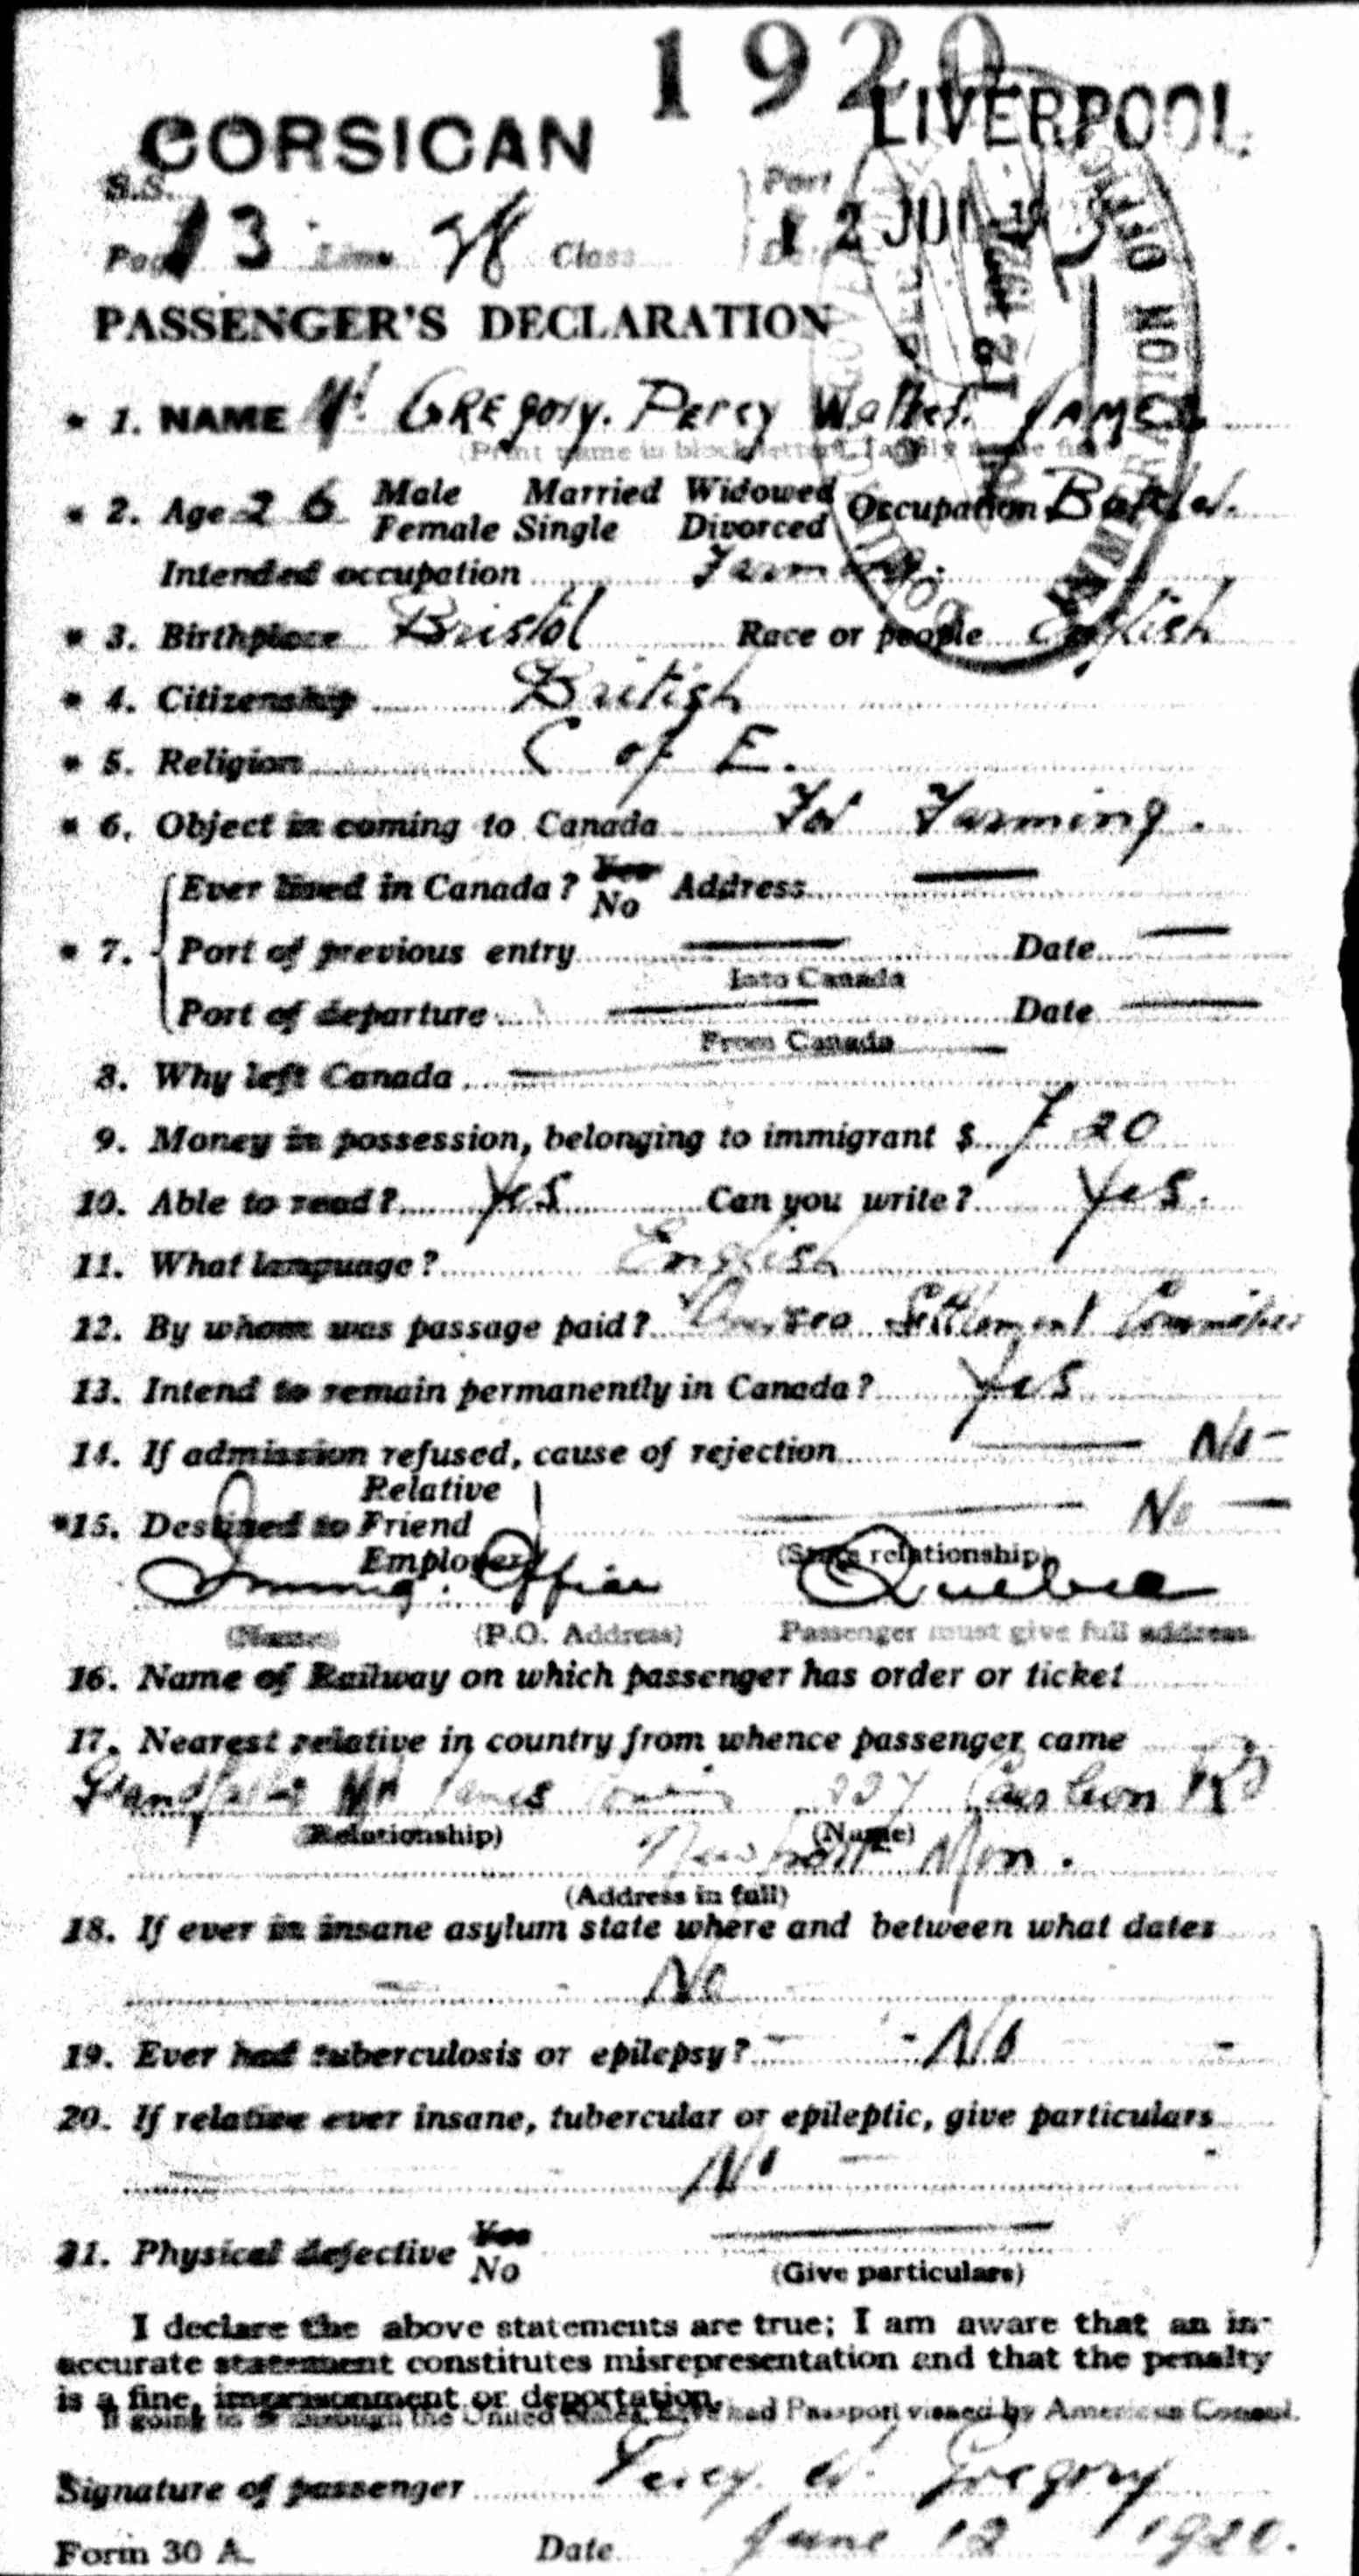 1920
CORSICAN LIVERPOOL
S.S. Port
Page 13 Line 38 Class Date 12 JUN
PASSENGER'S DECLARATION
* 1. NAME Mr. GREgory. Percy Walter. JAMES
(Print name in block letters, family name first)
* 2. Age 26 Male Married Widowed Occupation
Female Single Divorced
Intended occupation Farming.
* 3. Birthplace Bristol Race or people English
* 4. Citizenship British
* 5. Religion C of E.
* 6. Object in coming to Canada For Farming.
Ever lived in Canada? Yes Address
No
* 7. Port of previous entry Date
Into Canada
Port of departure Date
From Canada
8. Why left Canada
9. Money in possession, belonging to immigrant $ £ 20
10. Able to read? Yes Can you write? Yes.
11. What language? English
12. By whom was passage paid? Settlement
13. Intend to remain permanently in Canada? Yes
14. If admission refused, cause of rejection No -
Relative
*15. Destined to Friend No
Employer (State relationship)
Immig. Office Quebec
(Name) (P.O. Address) Passenger must give full address
16. Name of Railway on which passenger has order or ticket
17. Nearest relative in country from whence passenger came
Grandfather Mr James 227 Caerleon Rd
(Relationship) (Name)
Newport Mon.
(Address in full)
18. If ever in insane asylum state where and between what dates
No
19. Ever had tuberculosis or epilepsy? - No -
20. If relative ever insane, tubercular or epileptic, give particulars
No
21. Physical defective Yes
No
(Give particulars)
I declare the above statements are true; I am aware that an in-
accurate statement constitutes misrepresentation and that the penalty
is a fine, imprisonment or deportation.
If going to or through the United States, have had Passport viseed by American Consul.
Signature of passenger Percy. W. Gregory
Form 30 A. Date June 12 1920.